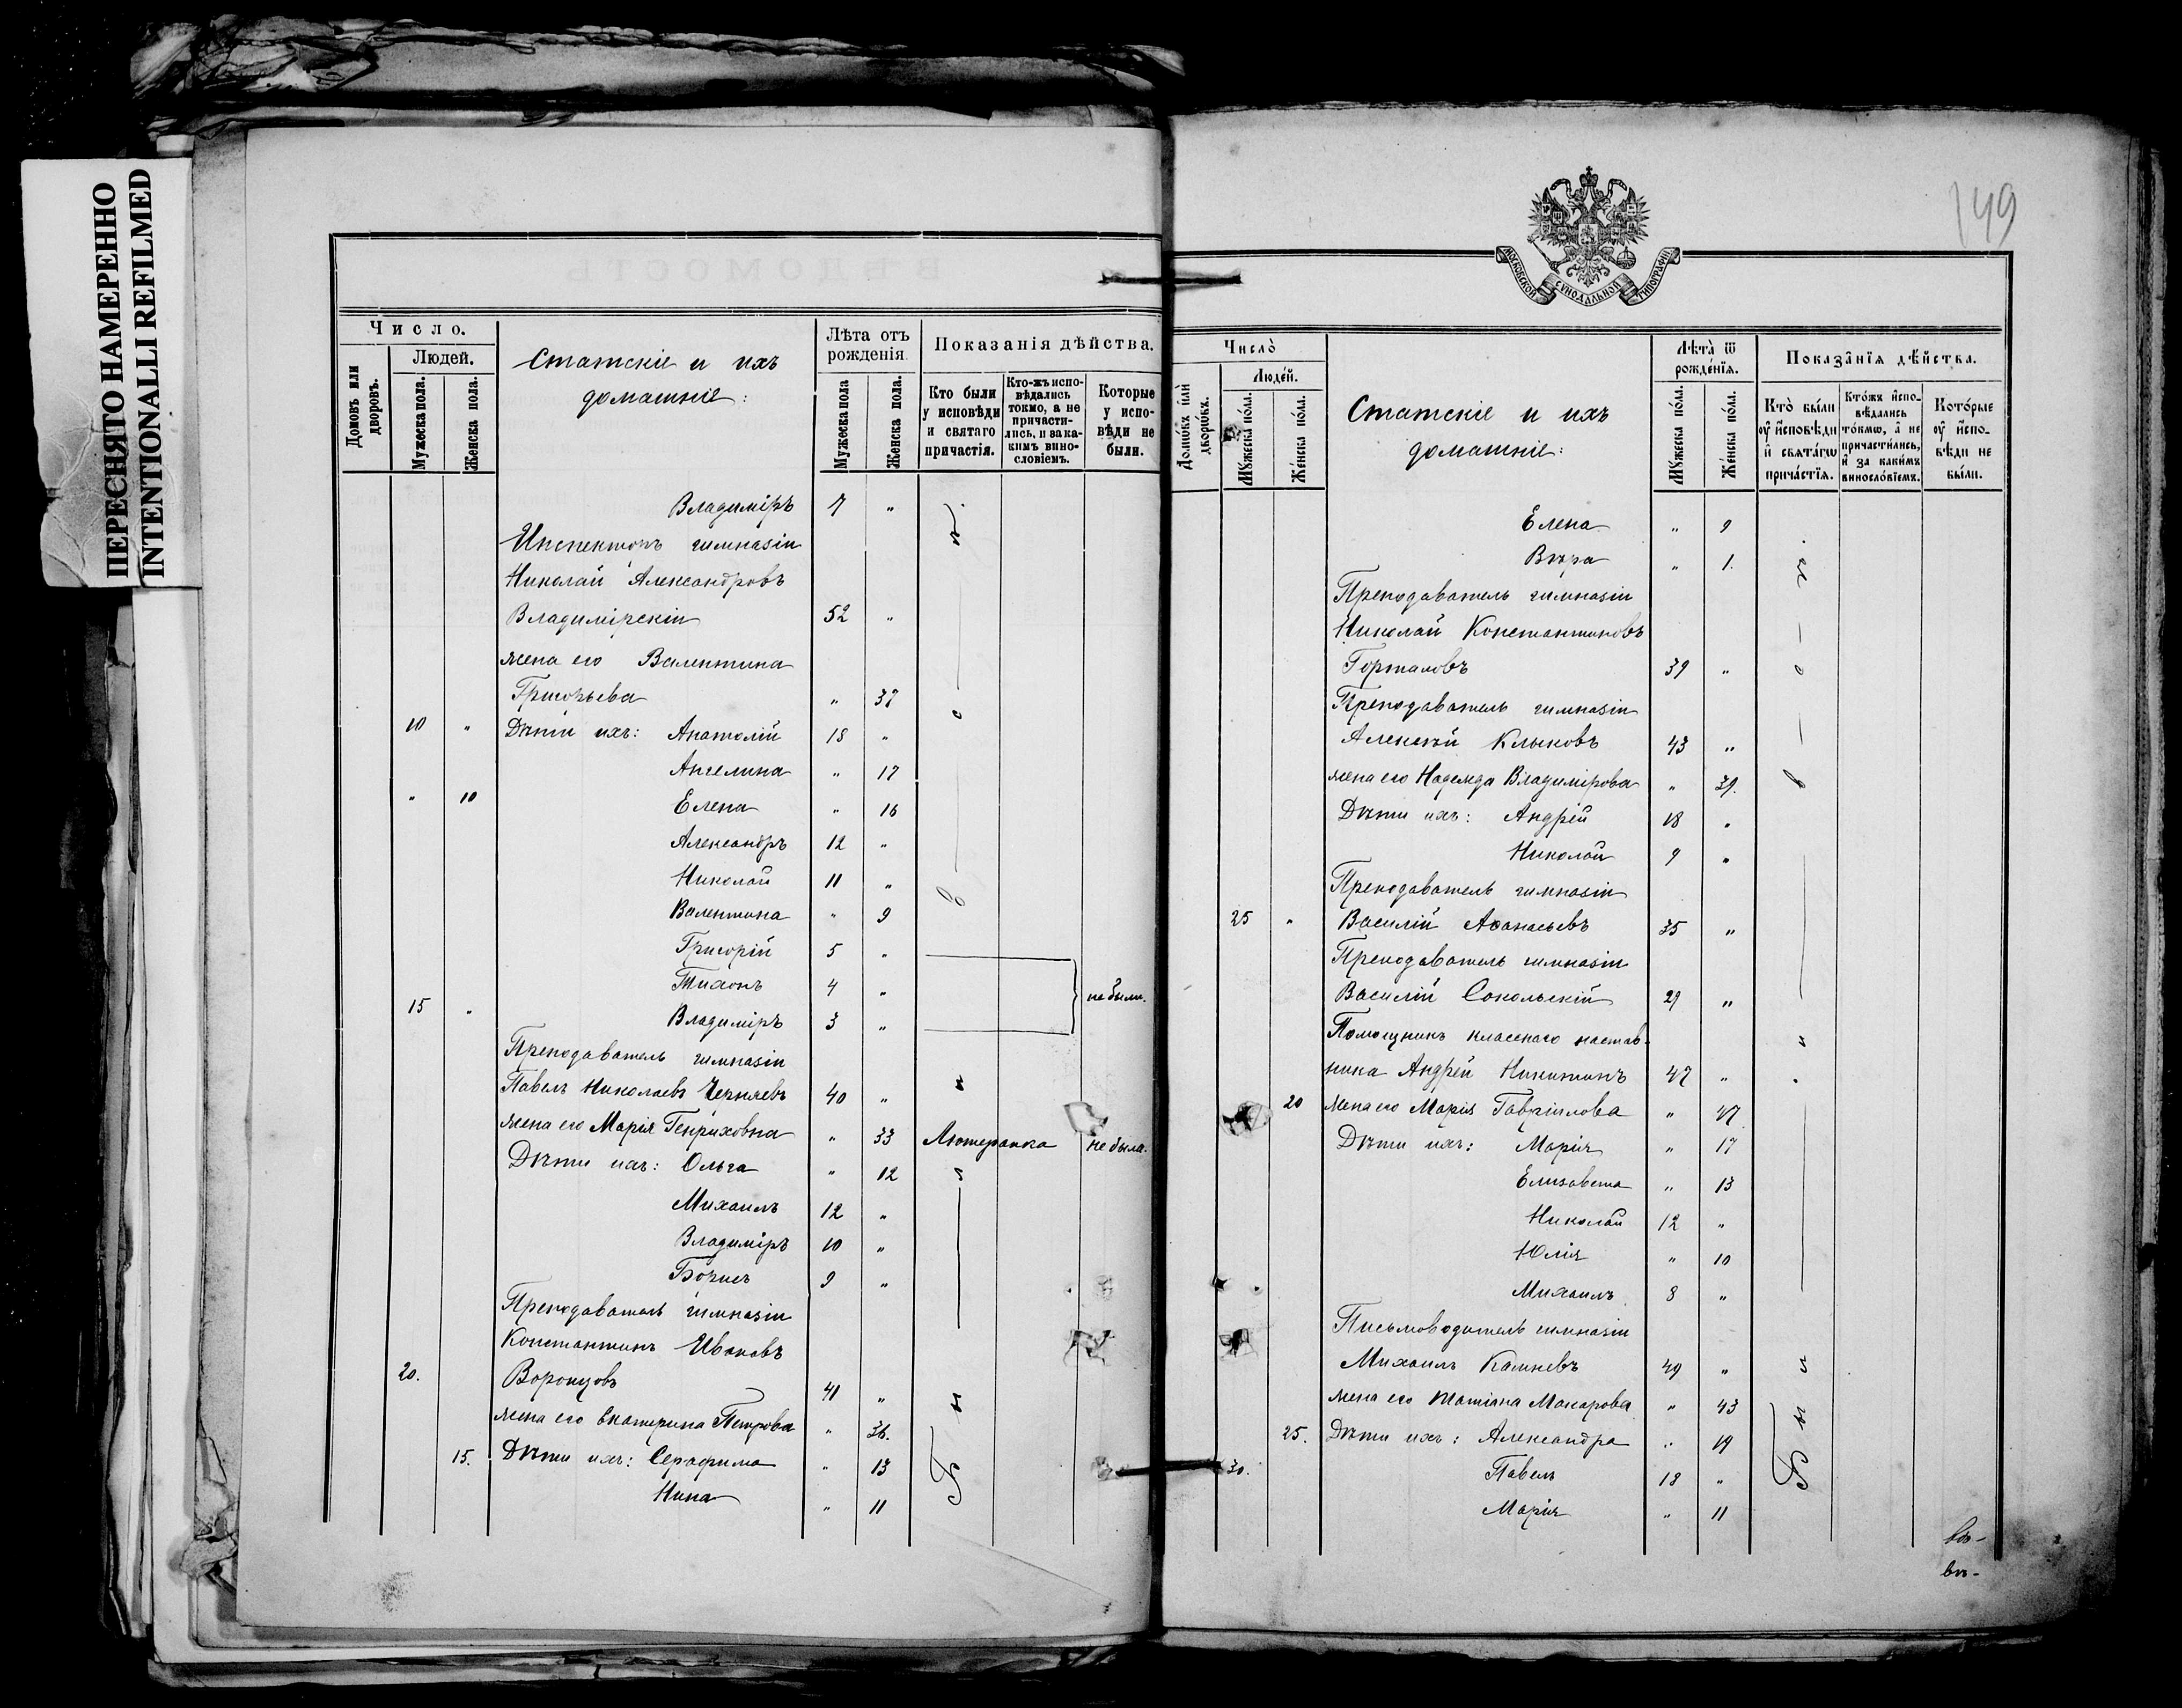 ПЕРЕСНЯТО НАМЕРЕННО
INTENTIONALLI REFILMED
Число.
Людей.
Домовъ или дворовъ.
Мужеска пола.
Женска пола.
Статскіе и ихъ
домашніе:
Лѣта отъ
рожденія.
Мужеска пола
Женска пола.
Показанія дѣйства.
Кто были
у исповѣди
и святаго
причастія.
Кто-жъ испо-
вѣдались
токмо, а не
причасти-
лись, и за ка-
кимъ вино-
словіемъ.
Которые
у испо-
вѣди не
были.
Владиміръ 7 "
Инспекторъ гимназіи
Николай Александровъ
Владимірскій 52 "
жена его Валентина
Григорьева " 37
10 " Дѣти ихъ: Анатолій 18 "
Ангелина " 17
" 10 Елена " 16
Александръ 12 "
Николай 11 "
Валентина " 9
Григорій 5 "
Тихонъ 4 " не были.
15 " Владиміръ 3 "
Преподаватель гимназіи
Павелъ Николаевъ Черняевъ 40 "
жена его Марія Генриховна " 33 Лютеранка не была.
Дѣти ихъ: Ольга " 12
Михаилъ 12 "
Владиміръ 10 "
Борисъ 9 "
Преподаватель гимназіи
Константинъ Ивановъ
20. Воронцовъ 41 "
жена его Екатерина Петрова " 36.
15. Дѣти ихъ: Серафима " 13
Нина " 11
149
МОСКОВСКОЙ СѴНОДАЛЬНОЙ ТИПОГРАФІИ
Число̀
Люде́й.
Домѡ́въ и҆лѝ дворѡ́въ.
Мꙋ́жеска по́ла.
Же́нска по́ла.
Статскіе и ихъ
домашніе:
Лѣ́та ѿ
рожде́нїѧ.
Мꙋ́жеска по́ла.
Же́нска по́ла.
Показа̑нїѧ дѣ́йства.
Кто̀ бы́ли
ᲂу҆ и҆сповѣ́ди
и҆ свѧта́гѡ
прича́стїѧ.
Кто́жъ и҆спо-
вѣ́дались
то́кмѡ, а҆ не
причасти́лись,
и҆ за каки́мъ
виносло́вїемъ.
Кото́рые
ᲂу҆ и҆спо-
вѣ́ди не
бы́ли.
Елена " 9
Вѣра " 1.
Преподаватель гимназіи
Николай Константиновъ
Горталовъ 39 "
Преподаватель гимназіи
Алексѣй Клыковъ 43 "
жена его Надежда Владимірова " 39.
Дѣти ихъ: Андрей 18 "
Николай 9 "
Преподаватель гимназіи
25 " Василій Аѳанасьевъ 35 "
Преподаватель гимназіи
Василій Сокольскій 29 "
Помощникъ класснаго настав-
ника Андрей Никитинъ 47 "
20 жена его Марія Гавріилова " 47
Дѣти ихъ: Марія " 17
Елизавета " 13
Николай 12 "
Юлія " 10
Михаилъ 8 "
Письмоводитель гимназіи
Михаилъ Камневъ 49 "
жена его Татіана Макарова " 43
25. Дѣти ихъ: Александра " 19
30. Павелъ 18 "
Марія " 11